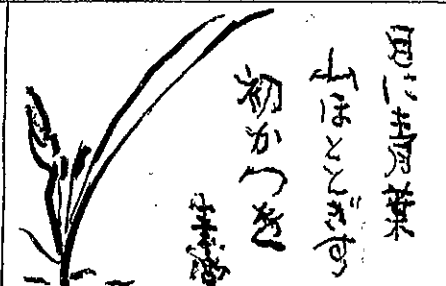 目に青葉
山ほととぎす
初かつを